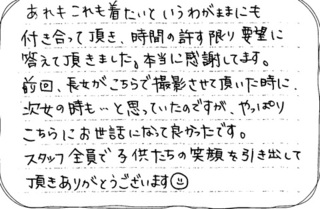 あれもこれも着たいというわがままにも
付き合って頂き、時間の許す限り要望に
答えて頂きました。本当に感謝してます。
前回、長女がこちらで撮影させて頂いた時に、
次女の時も…と思っていたのですが、やっぱり
こちらにお世話になって良かったです。
スタッフ全員で子供たちの笑顔を引き出して
頂きありがとうございます☺